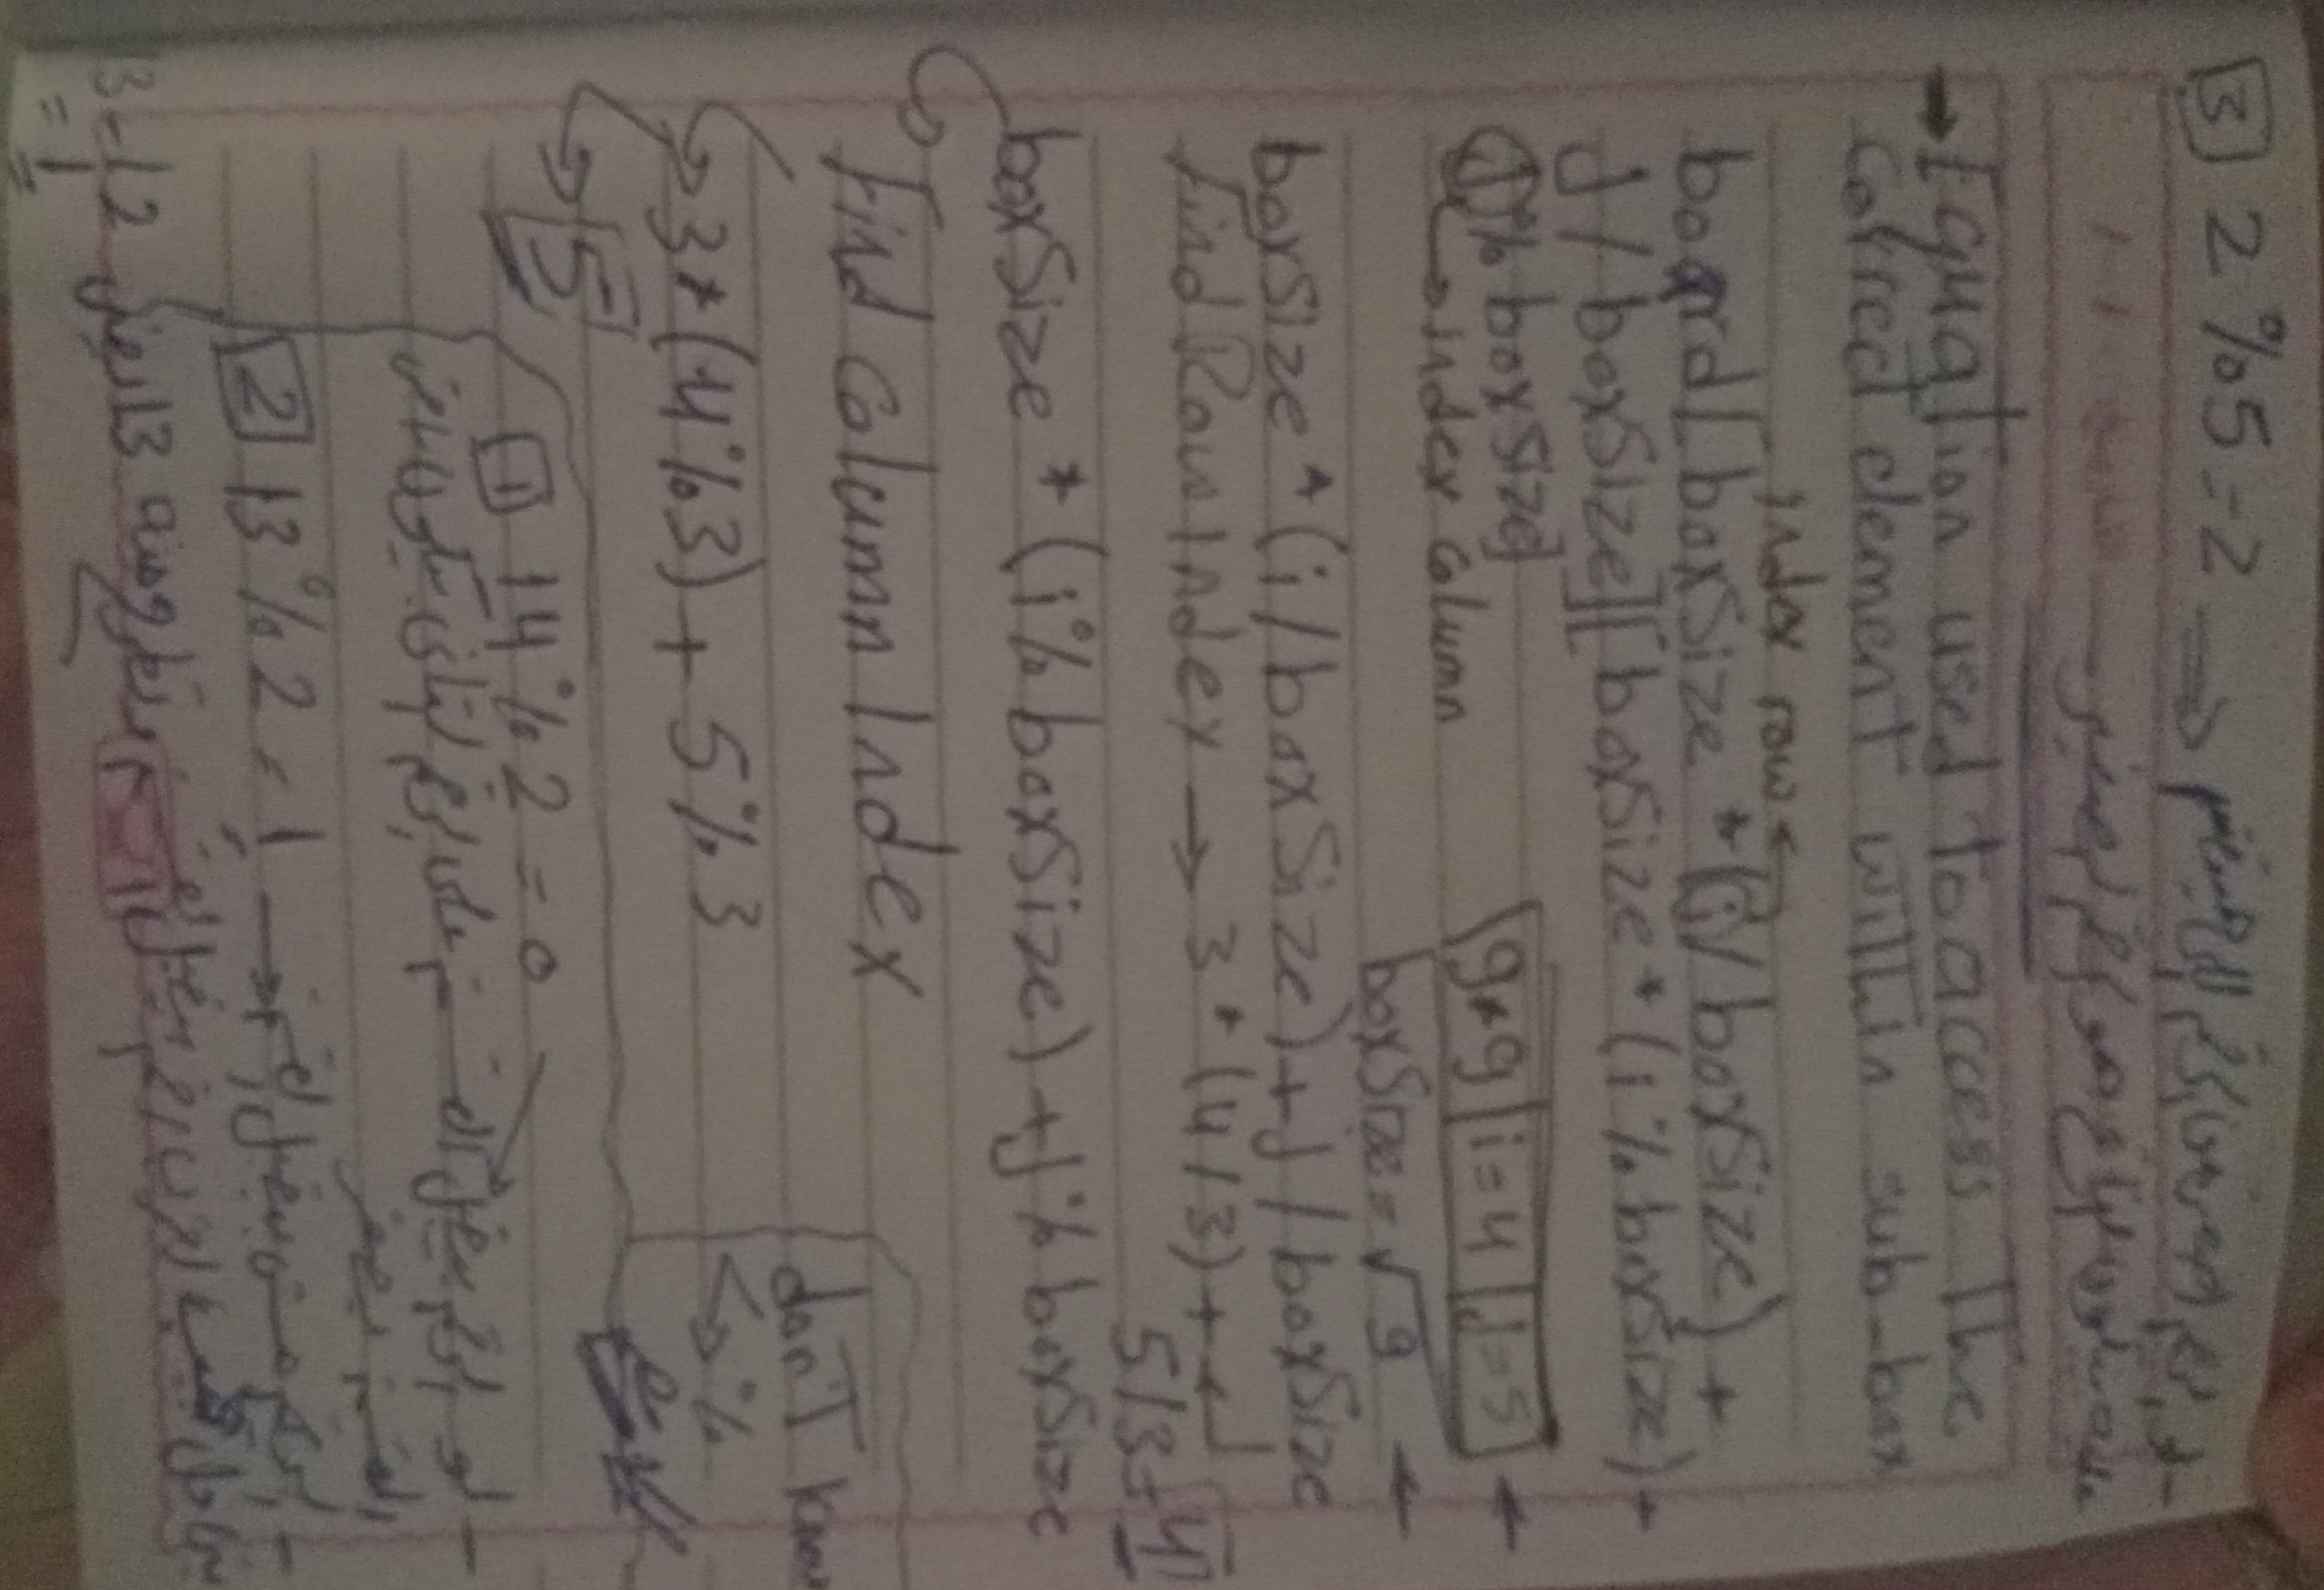 3 2 % 5 = 2 ⇒ - لو الرقم اصغر من الرقم اللي هيتقسم
عليه بيكون الناتج هو الرقم الصغير
التاريخ / /
→ Equation used to access The
correct element within sub-box
index row ←
board[boxSize * (i / boxSize) +
j / boxSize][boxSize * (i % boxSize) +
j % boxSize]
↳ index column
9*9 | i = 4 | j = 5 ←
boxSize = √9 ←
boxSize * (i / boxSize) + j / boxSize
Find Row Index → 3 * (4 / 3) + ↵
5 / 3 = 4
boxSize * (i % boxSize) + j % boxSize
↳ Find column Index
↳ 3 * (4 % 3) + 5 % 3
↳ 5
don't know
↳ %
1 14 % 2 = 0
- لو الرقم بيقبل القسمة على الرقم التاني بيكون
القسمة بصفر
2 13 % 2 = 1 → - الرقم مش بيقبل القسمة
اقرب رقم يقبل القسمة ونطرح منه 13 يعني 12 - 13
= 1